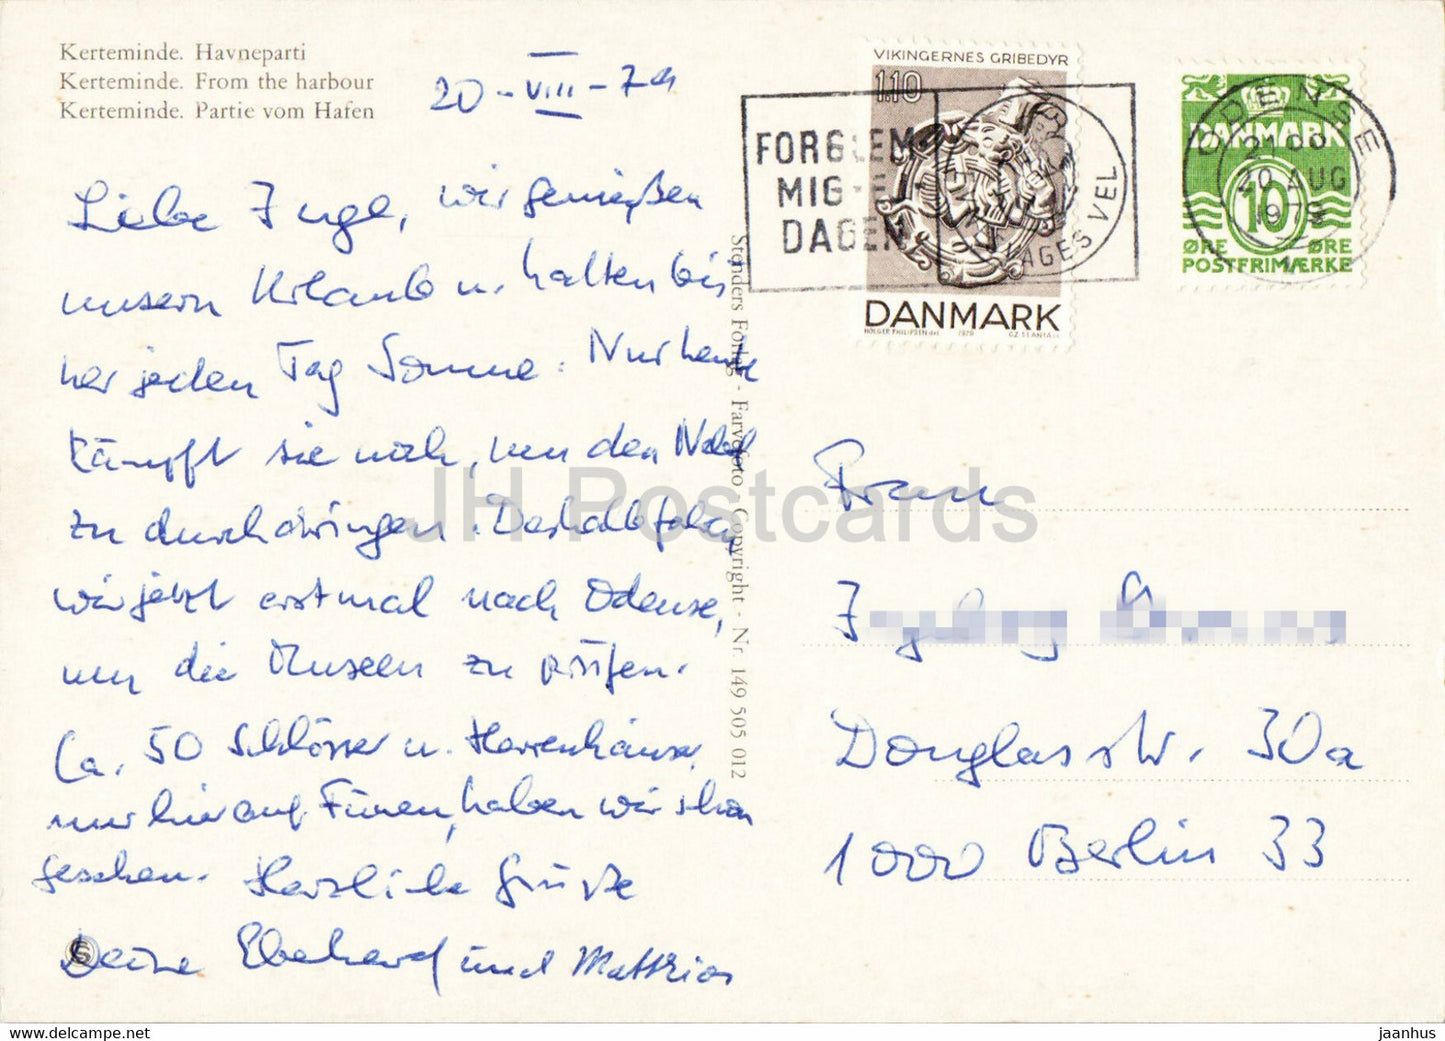 Kerteminde. Havneparti
Kerteminde. From the harbour
Kerteminde. Partie vom Hafen
20-VIII-79
Liebe Inge, wir genießen
unsern Urlaub u. halten bis
her jeden Tag Sonne. Nur heute
kämpft sie noch, um den Nebel
zu durchdringen. Deshalb fahren
wir jetzt erstmal nach Odense,
um die Museen zu prüfen.
Ca. 50 Schlösser u. Herrenhäuser,
nur hier auf Fünen, haben wir schon
gesehen. Herzliche Grüße
Deine Eberhard und Matthias
Stenders Forlag - Farvefoto - Copyright - Nr. 149 505 012
FORGLEM
MIG-E
DAGEN
DAGES VEL
VIKINGERNES GRIBEDYR
1.10
DANMARK
HOLGER PHILIPSEN del. 1979 CZ. SLANIA sc.
ODENSE
21 00
20 AUG
1979
DANMARK
10
ØRE ØRE
POSTFRIMÆRKE
Frau
Douglasstr. 30a
1000 Berlin 33
JH Postcards
www.delcampe.net
jaanhus